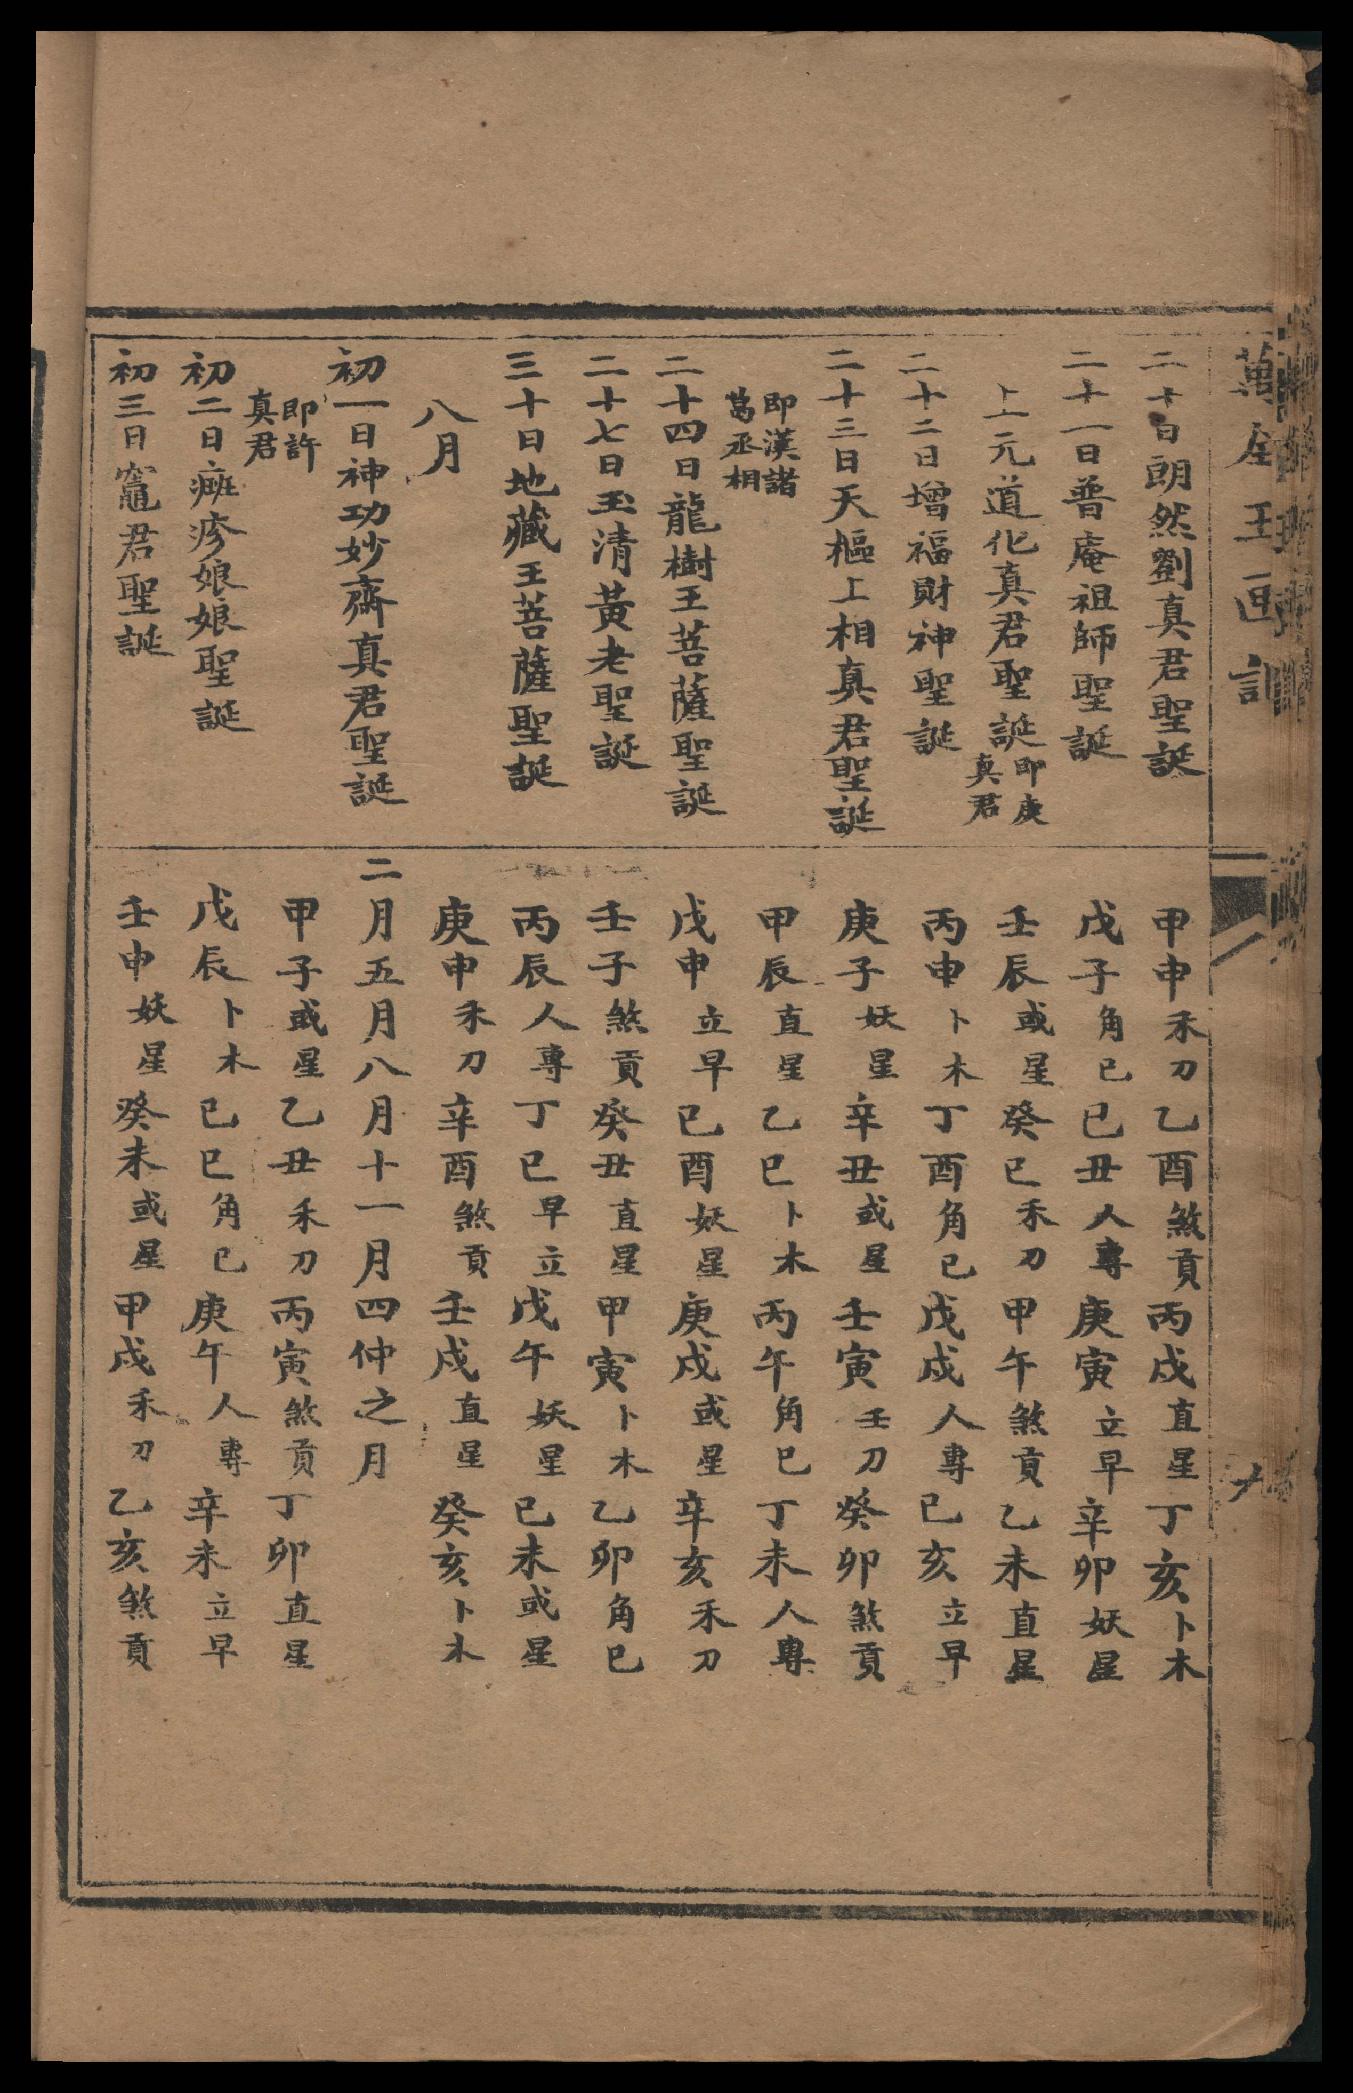 二十日朗然劉真君聖誕
二十一日普庵祖師聖誕
上元道化真君聖誕即庚真君
二十二日增福財神聖誕
二十三日天樞上相真君聖誕
即漢諸葛丞相
二十四日龍樹王菩薩聖誕
二十七日玉清黃老聖誕
三十日地藏王菩薩聖誕
八月
初一日神功妙齋真君聖誕
即許真君
初二日痲疹娘娘聖誕
初三日竈君聖誕
甲申禾刀乙酉煞貢丙戌直星丁亥卜木
戊子角已已丑人專庚寅立早辛卯妖星
壬辰或星癸已禾刀甲午煞貢乙未直星
丙申卜木丁酉角已戊戌人專已亥立早
庚子妖星辛丑或星壬寅壬刀癸卯煞貢
甲辰直星乙巳卜木丙午角巳丁未人專
戊申立早已酉妖星庚戌或星辛亥禾刀
壬子煞貢癸丑直星甲寅卜木乙卯角巳
丙辰人專丁巳早立戊午妖星已未或星
庚申禾刀辛酉煞貢壬戌直星癸亥卜木
二月五月八月十一月四仲之月
甲子或星乙丑禾刀丙寅煞貢丁卯直星
戊辰卜木已巳角已庚午人專辛未立早
壬申妖星癸未或星甲戌禾刀乙亥煞貢